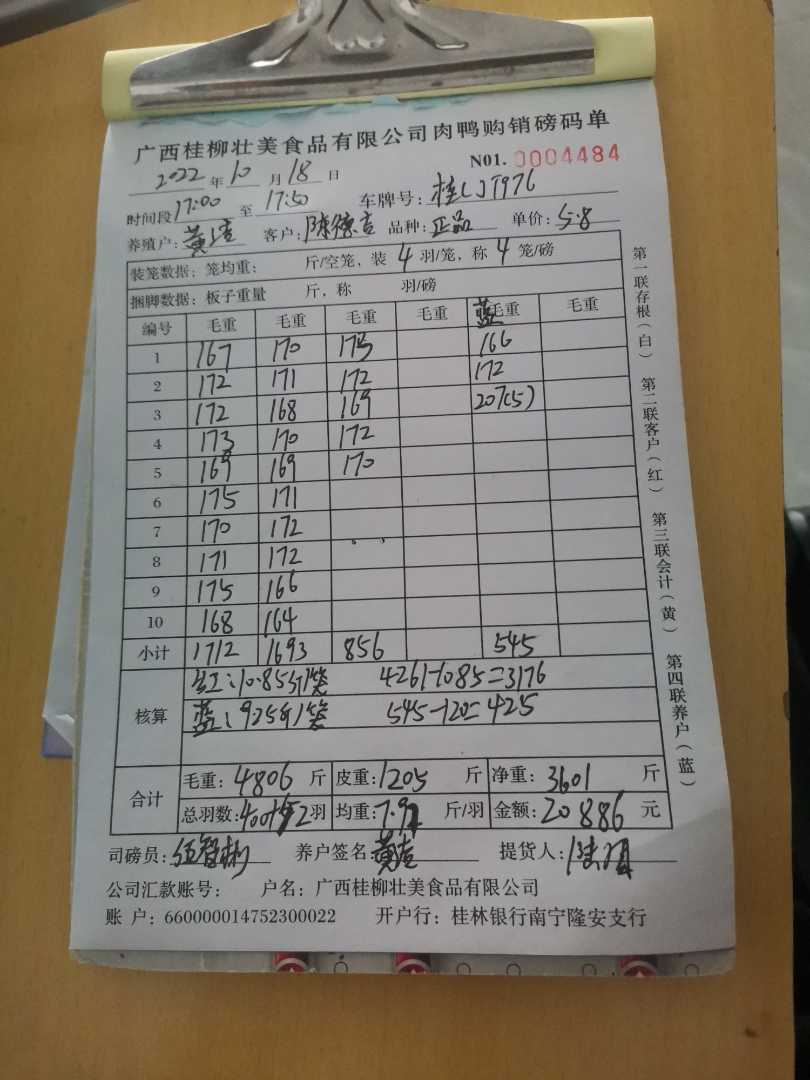 广西桂柳壮美食品有限公司肉鸭购销磅码单
2022 年 10 月 18 日 N01. 0004484
时间段 17:00 至 17:50 车牌号: 桂 J T976
养殖户: 黄 客户: 陈德吉 品种: 正品 单价: 5.8
装笼数据: 笼均重: 斤/空笼, 装 4 羽/笼, 称 4 笼/磅
捆脚数据: 板子重量 斤, 称 羽/磅
编号 毛重 毛重 毛重 毛重 蓝 毛重 毛重
1 167 170 175 166
2 172 171 172 172
3 172 168 169 207(5)
4 173 170 172
5 169 169 170
6 175 171
7 170 172
8 171 172
9 175 166
10 168 164
小计 1712 1693 856 545
核算 红:10.85斤/笼 4261-1085=3176
蓝:9.25斤/笼 545-120=425
合计 毛重: 4806 斤 皮重: 1205 斤 净重: 3601 斤
总羽数: 羽 均重: 7.92 斤/羽 金额: 20886 元
司磅员: 养户签名: 黄 提货人:
公司汇款账号: 户名: 广西桂柳壮美食品有限公司
账 户: 660000014752300022 开户行: 桂林银行南宁隆安支行
第一联存根(白) 第二联客户(红) 第三联会计(黄) 第四联养户(蓝)